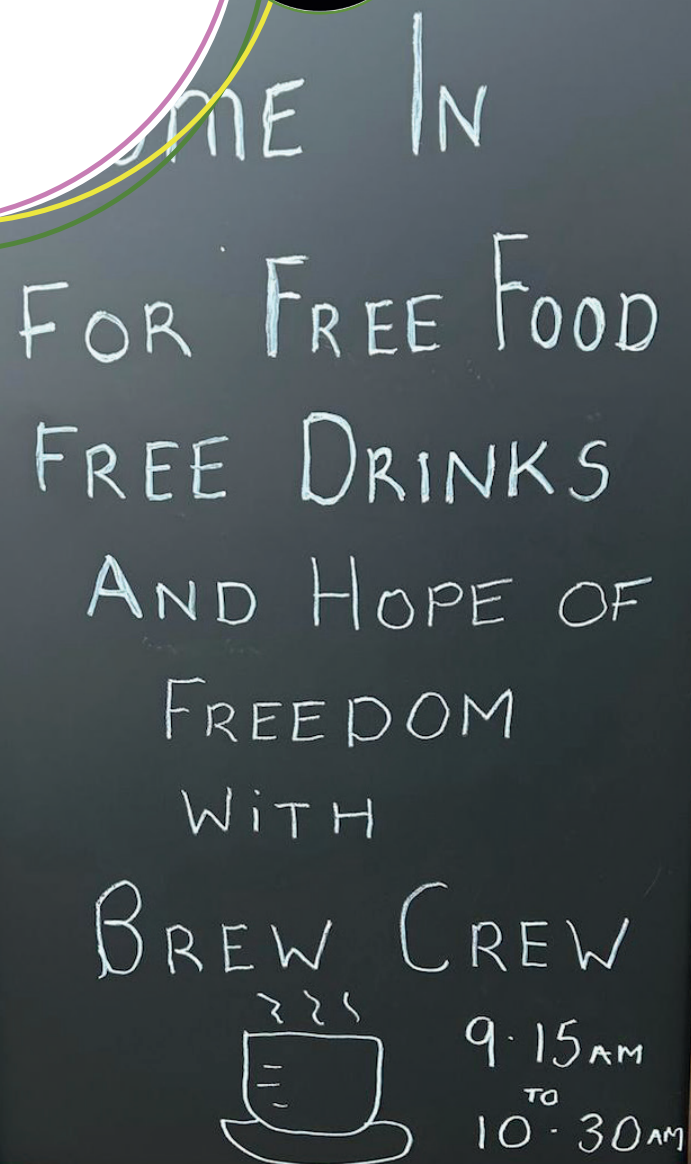 ome In
For Free Food
Free Drinks
And Hope of
Freedom
WiTH
Brew Crew
9.15am
to
10-30am